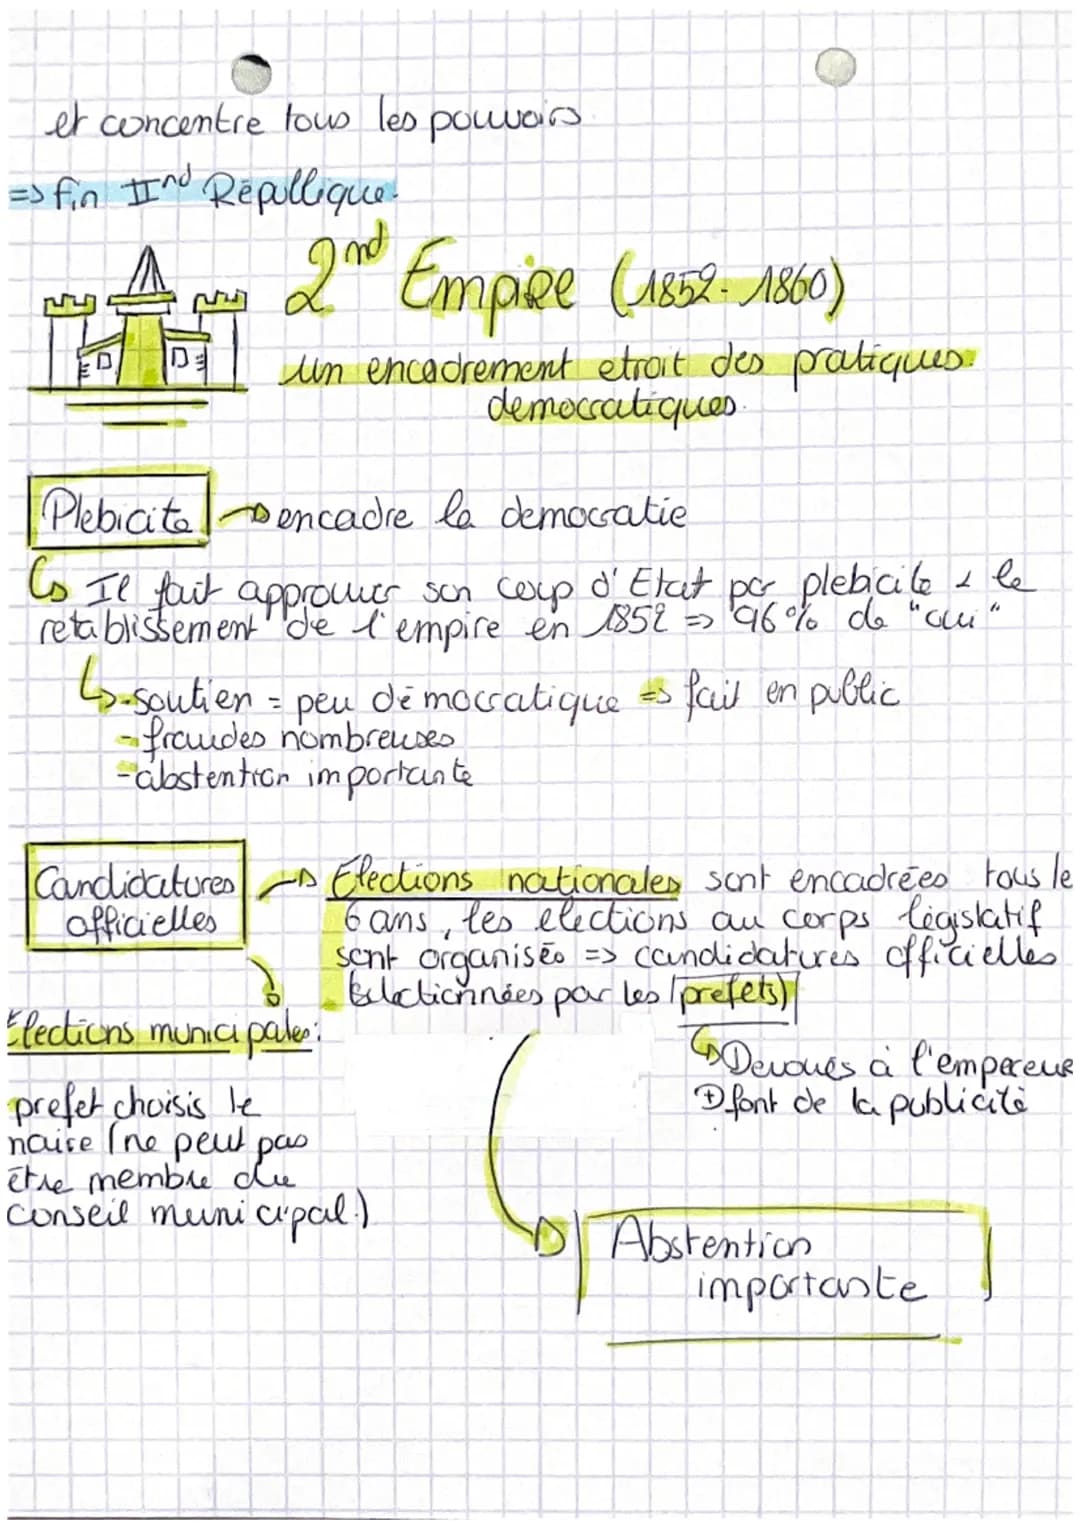 et concentre tous les pouvoirs
=> fin IInd Répullique.
2nd Empire (1852-1860)
Un encadrement etroit des pratiques
democratiques.
Plebicite → encadre la democratie
↳ Il fait approuver son coup d'Etat par plebicite & le
retablissement de l'empire en 1852 => 96% de "oui"
↳ - soutien = peu démocratique => fait en public
- fraudes nombreuses
- abstention importante
Candidatures → Elections nationales sont encadrées tous les
officielles 6 ans, les elections au corps législatif
sont organisés => candidatures officielles
par les (prefets)
Elections municipales:
↳ Devoués à l'empereur
prefet choisis le
+ font de la publicité
maire (ne peut pas
être membre du
conseil municipal.)
Abstention
importante